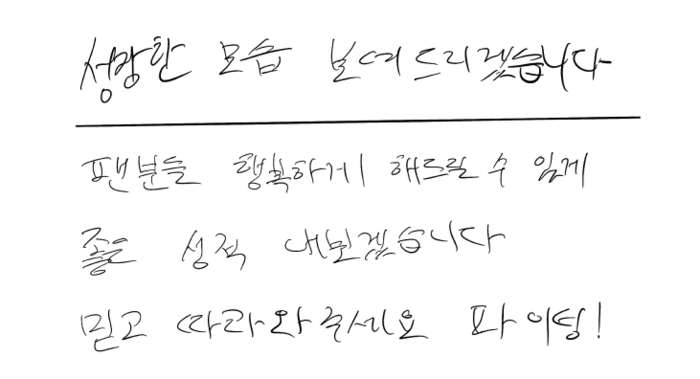 성장한 모습 보여드리겠습니다
팬분들 행복하게 해드릴 수 있게
좋은 성적 내보겠습니다
믿고 따라와주세요 파이팅!